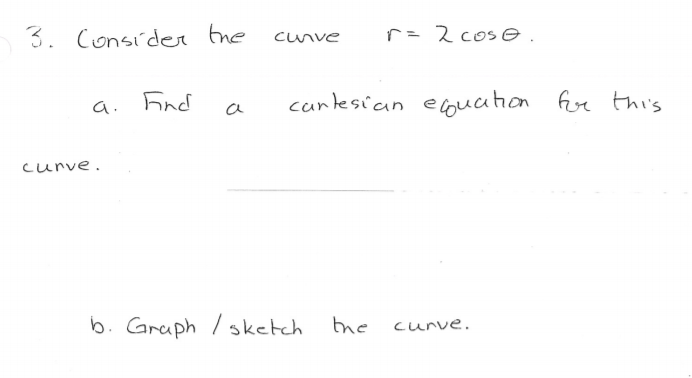 3. Consider the curve r = 2 cosθ.
a. Find a cartesian equation for this
curve.
b. Graph / sketch the curve.